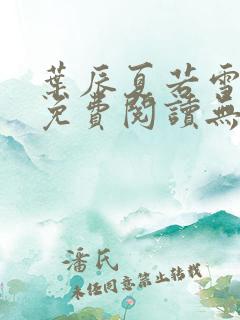 葉辰夏若雪
免費閱讀無
潘氏
未经同意禁止转载